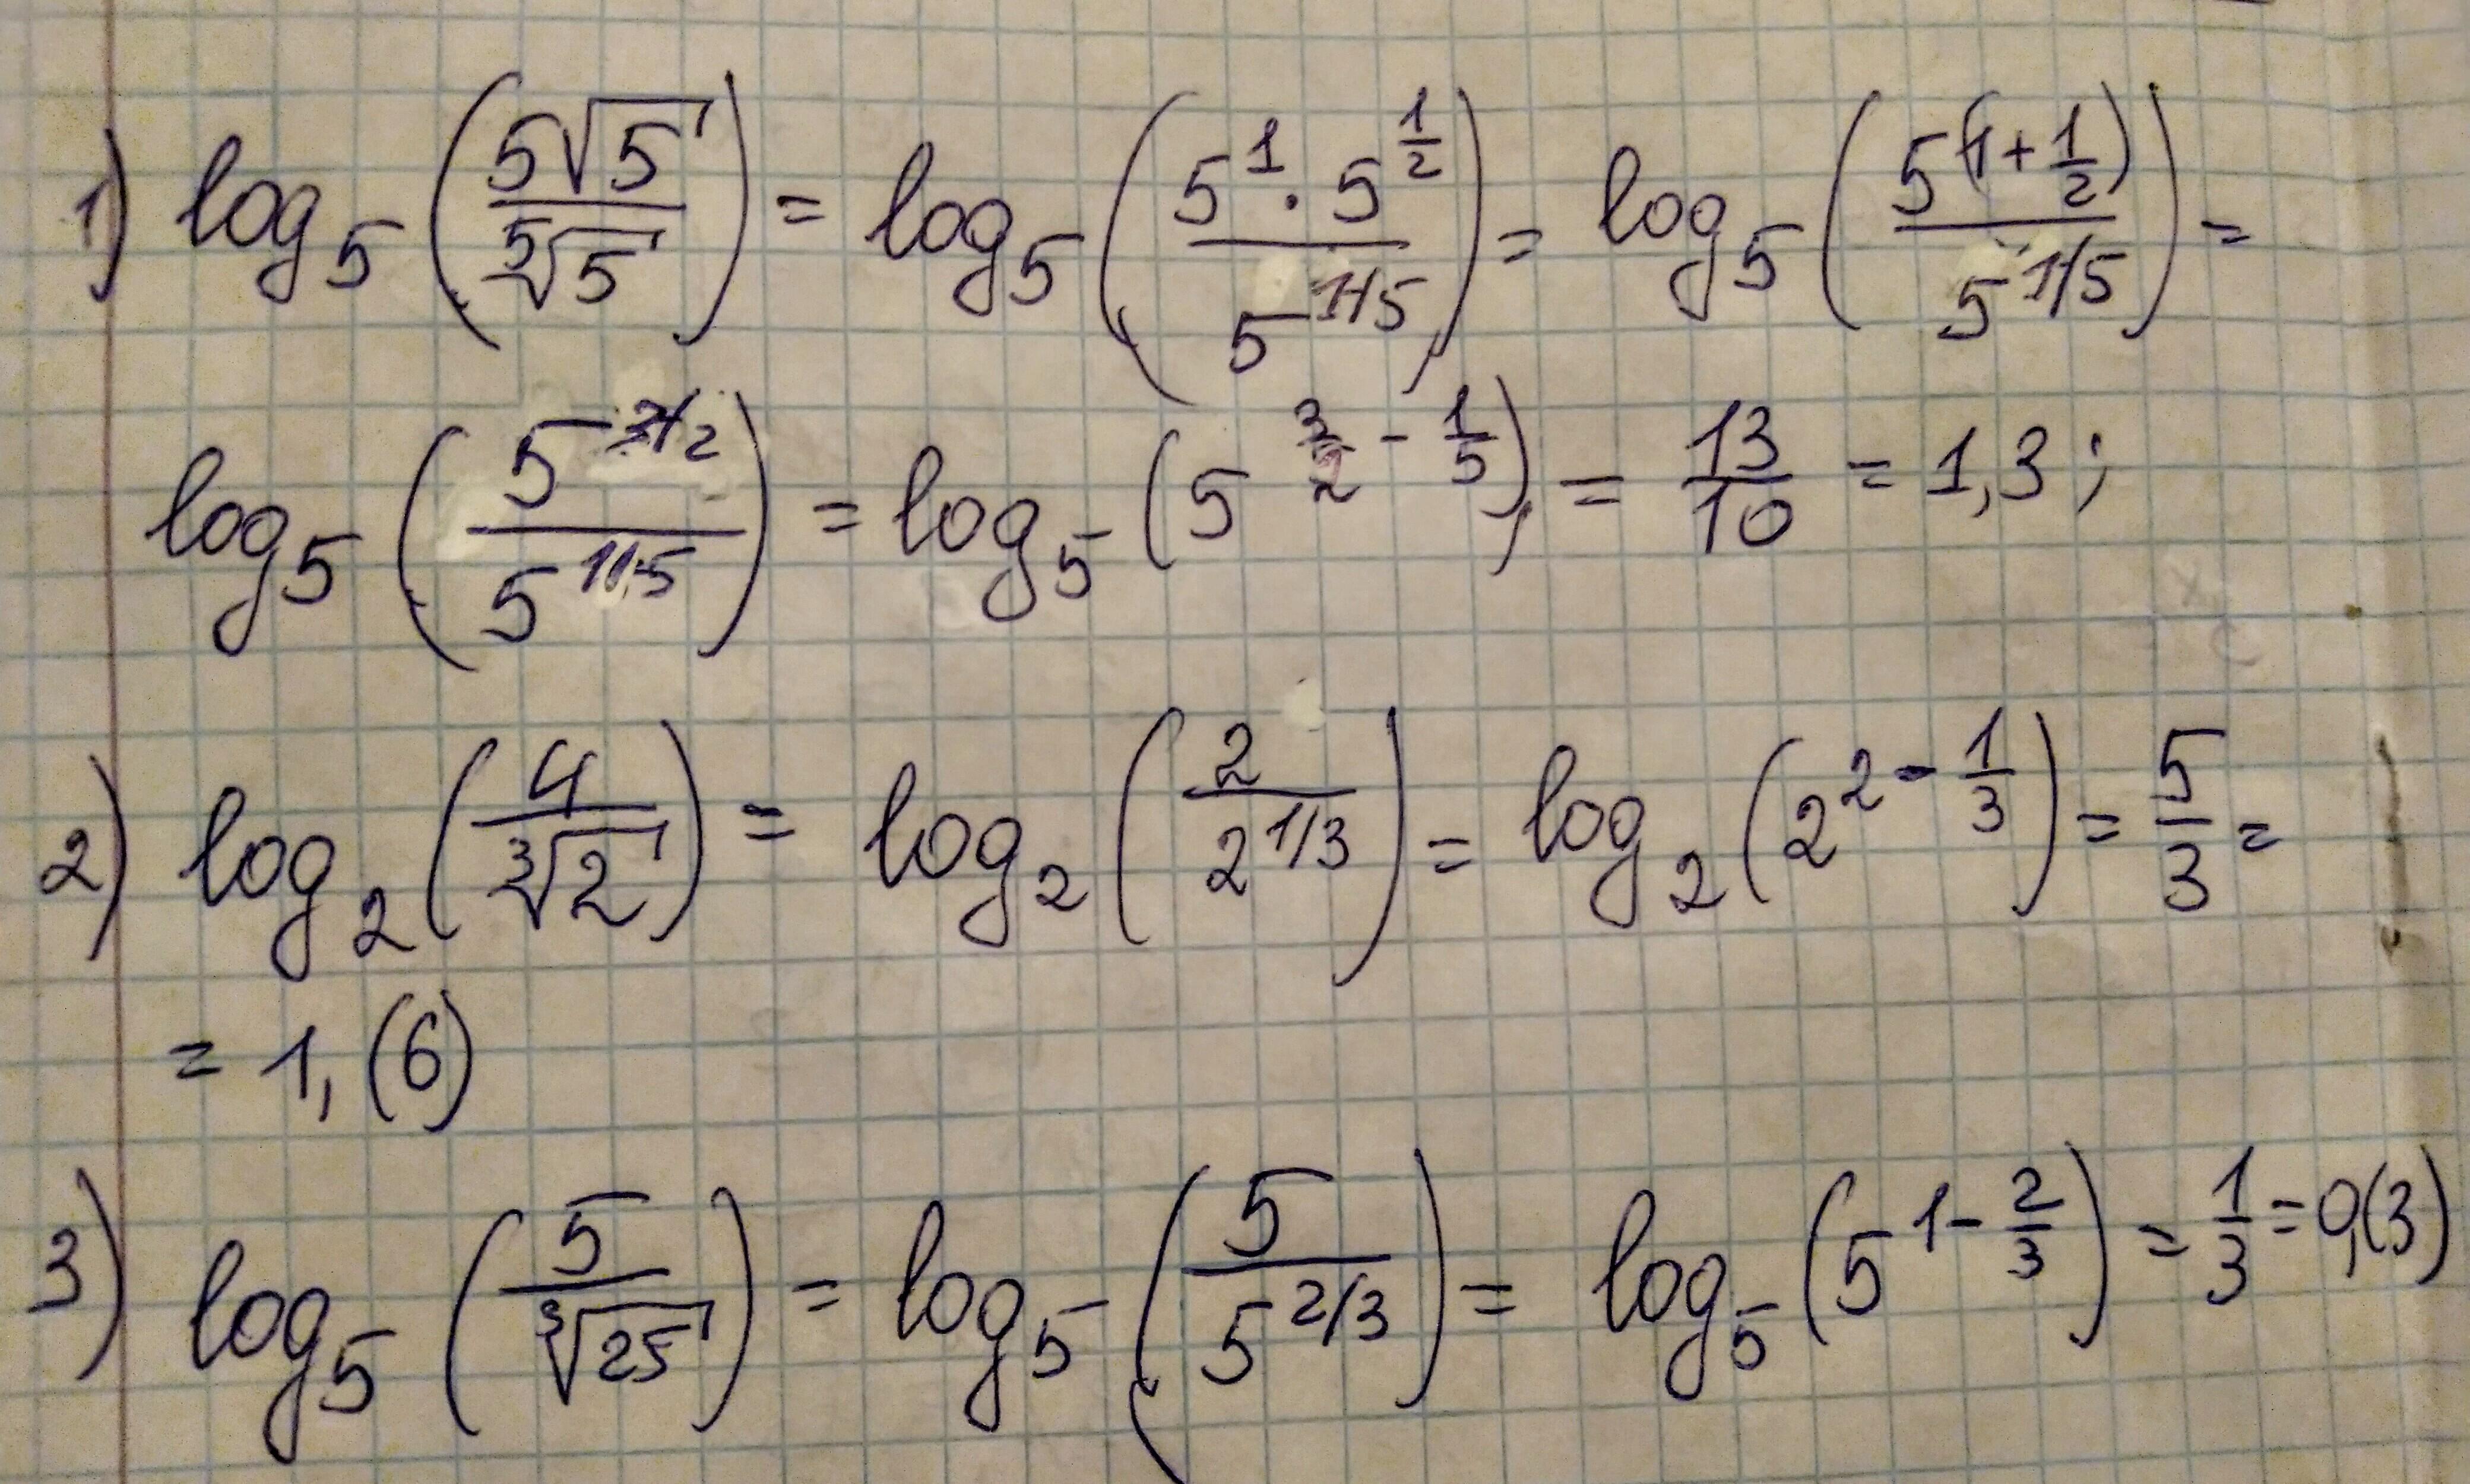 1) log₅(5√5 / ⁵√5) = log₅(5¹ · 5^(1/2) / 5^(1/5)) = log₅(5^(1+1/2) / 5^(1/5)) =
log₅(5^(3/2) / 5^(1/5)) = log₅(5^(3/2 - 1/5)) = 13/10 = 1,3;
2) log₂(4 / ³√2) = log₂(2 / 2^(1/3)) = log₂(2^(2 - 1/3)) = 5/3 =
= 1,(6)
3) log₅(5 / ³√25) = log₅(5 / 5^(2/3)) = log₅(5^(1 - 2/3)) = 1/3 = 0,(3)